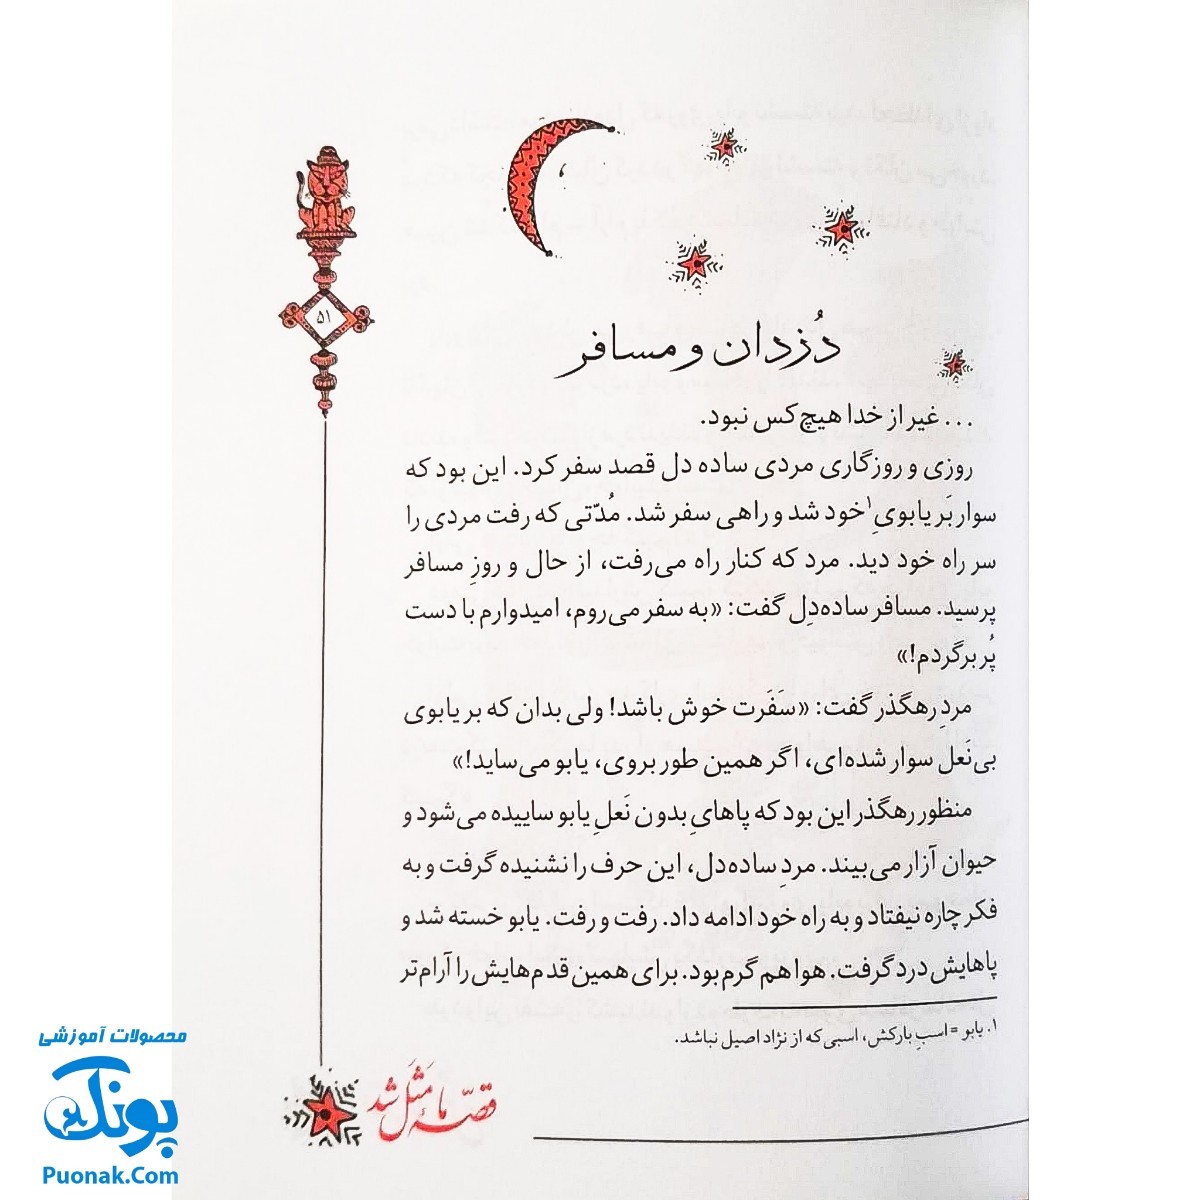 ۵۱
دُزدان و مسافر
... غیر از خدا هیچ کس نبود.
روزی و روزگاری مردی ساده دل قصد سفر کرد. این بود که
سوار بَر یابویِ۱ خود شد و راهی سفر شد. مُدّتی که رفت مردی را
سر راه خود دید. مرد که کنار راه می‌رفت، از حال و روزِ مسافر
پرسید. مسافر ساده‌دِل گفت: «به سفر می‌روم، امیدوارم با دست
پُر برگردم!»
مردِ رهگذر گفت: «سَفَرت خوش باشد! ولی بدان که بر یابوی
بی‌نَعل سوار شده‌ای، اگر همین طور بروی، یابو می‌ساید!»
منظور رهگذر این بود که پاهایِ بدون نَعلِ یابو ساییده می‌شود و
حیوان آزار می‌بیند. مردِ ساده‌دل، این حرف را نشنیده گرفت و به
فکر چاره نیفتاد و به راه خود ادامه داد. رفت و رفت. یابو خسته شد و
پاهایش درد گرفت. هوا هم گرم بود. برای همین قدم‌هایش را آرام‌تر
۱. یابو = اسبِ بارکش، اسبی که از نژاد اصیل نباشد.
قصّه ما مَثَل شد
محصولات آموزشی
پونک
Puonak.Com